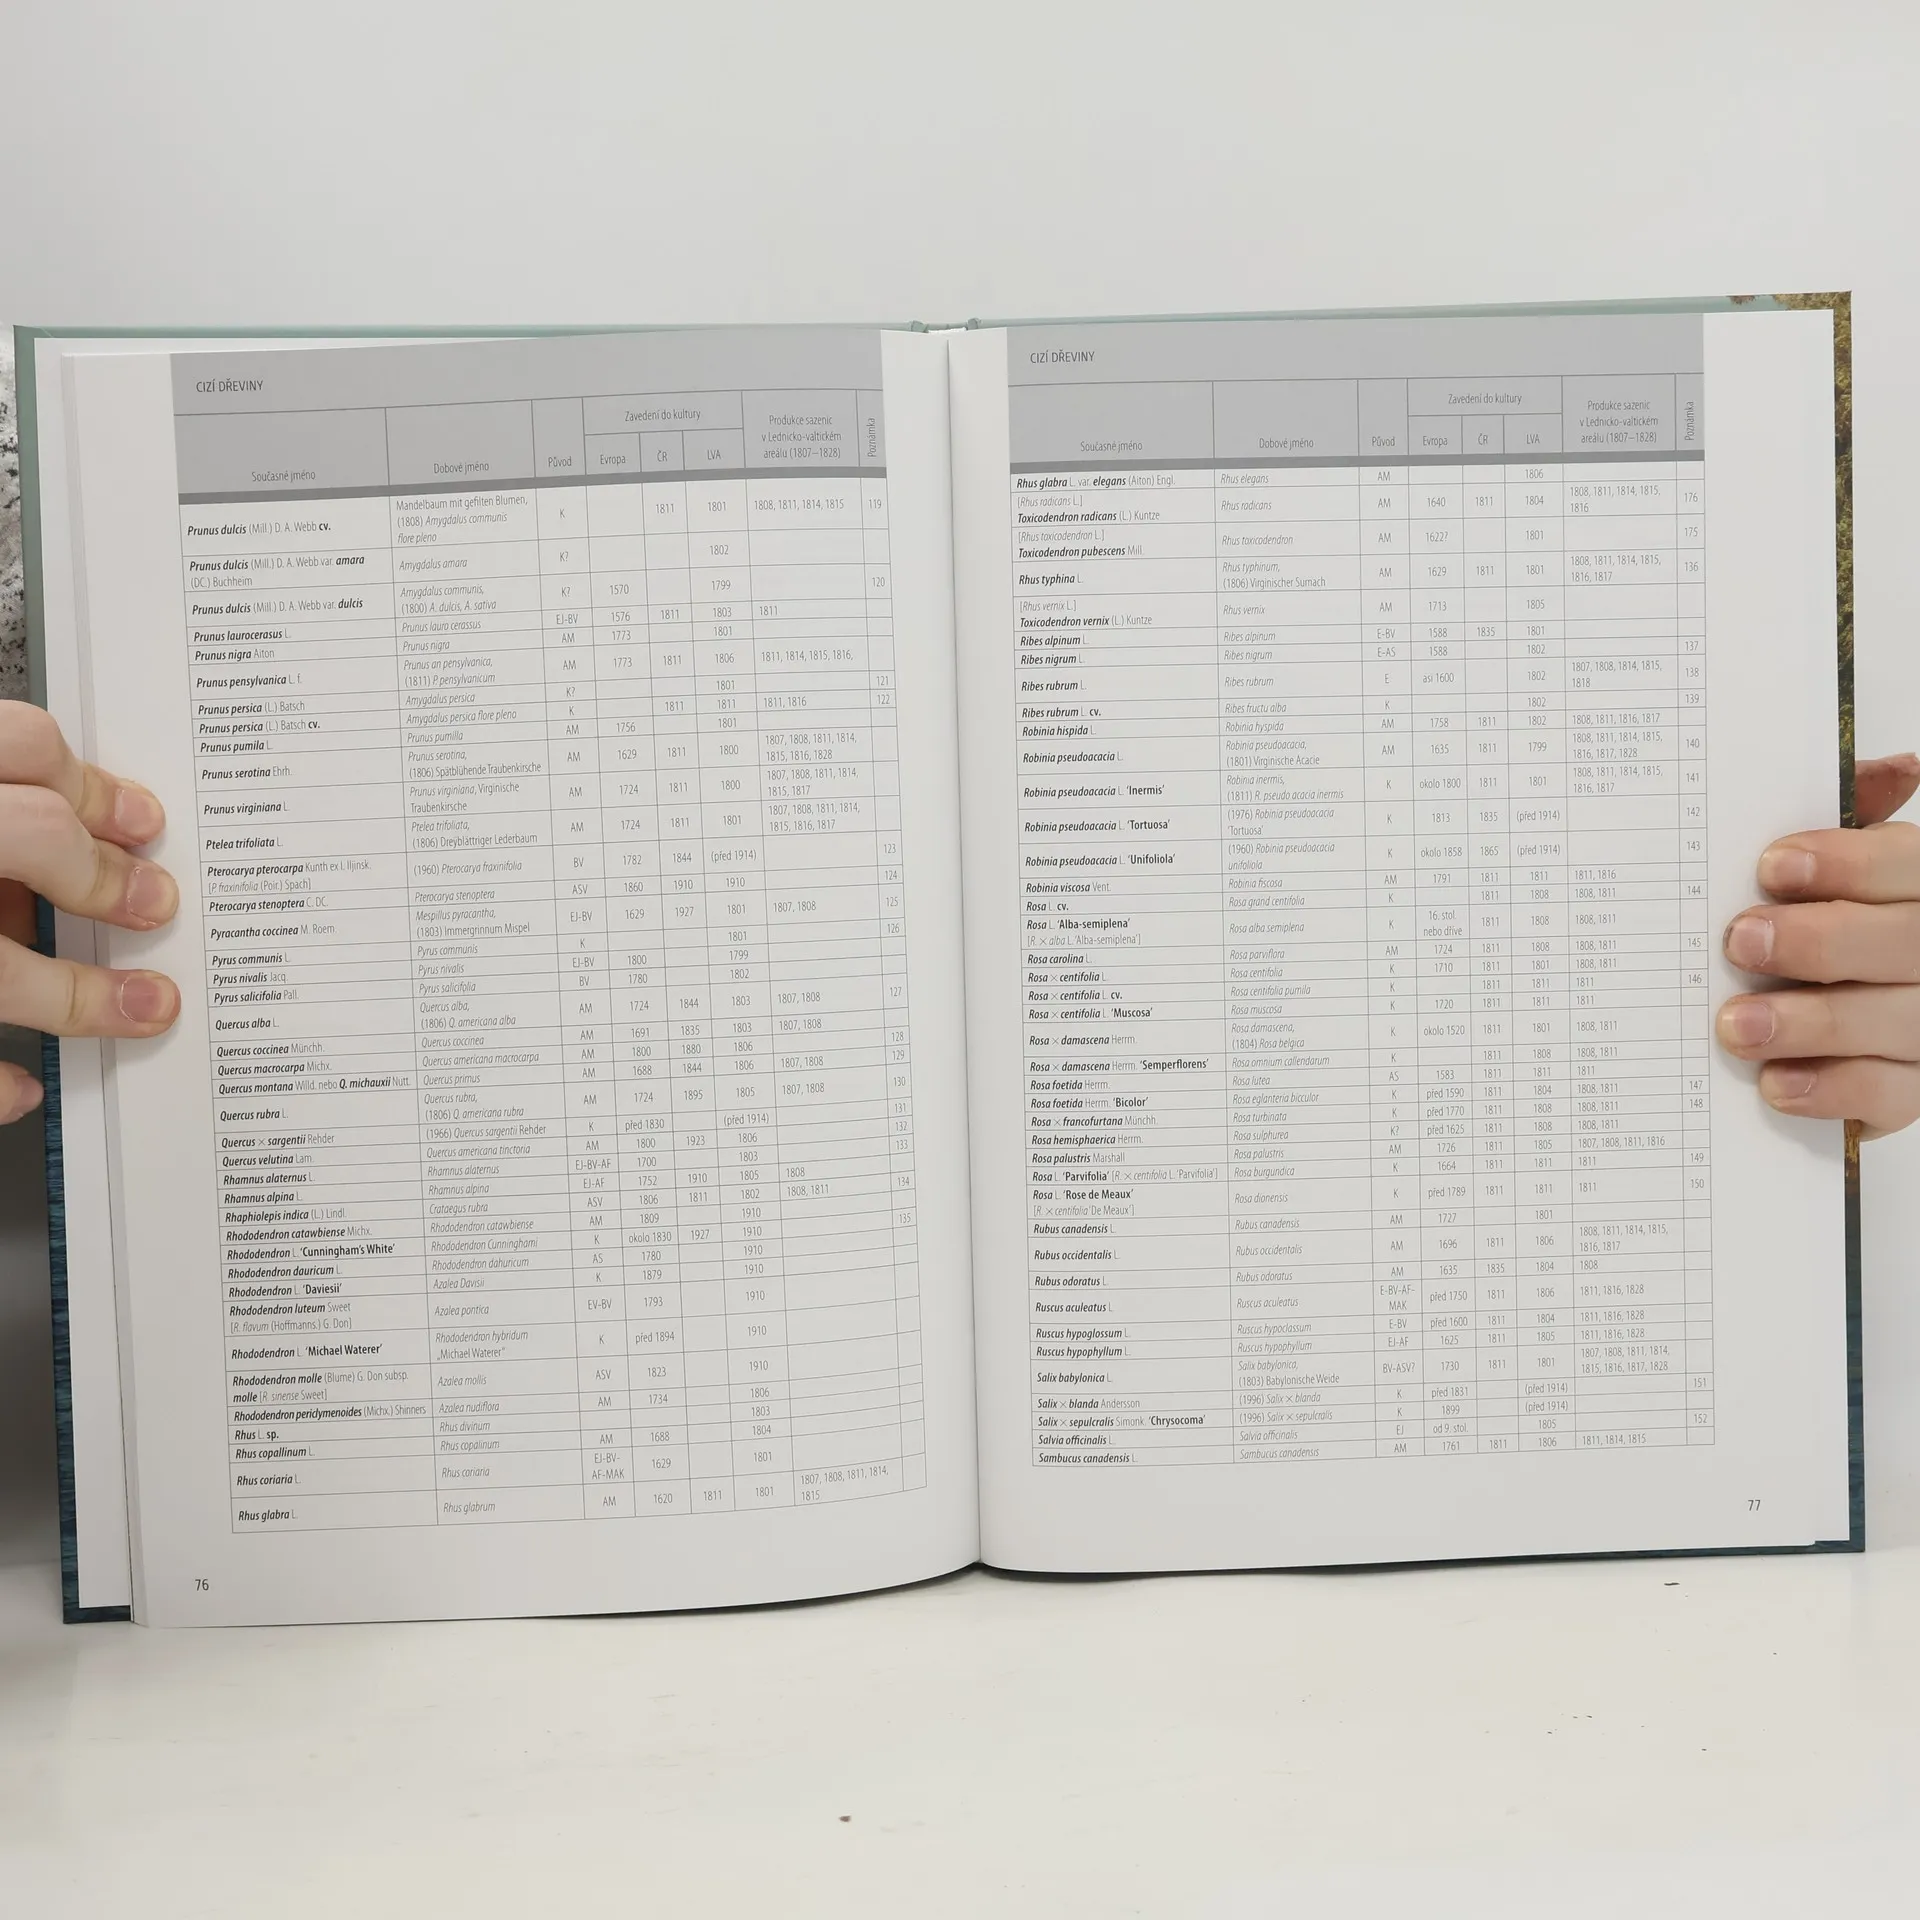 CIZÍ DŘEVINY
Současné jméno Dobové jméno Původ Zavedení do kultury Evropa ČR LVA Produkce sazenic v Lednicko-valtickém areálu (1807–1828) Poznámka
Prunus dulcis (Mill.) D. A. Webb cv. Mandelbaum mit gefilten Blumen, (1808) Amygdalus communis flore pleno K 1811 1801 1808, 1811, 1814, 1815 119
Prunus dulcis (Mill.) D. A. Webb var. amara (DC.) Buchheim Amygdalus amara K? 1802
Prunus dulcis (Mill.) D. A. Webb var. dulcis Amygdalus communis, (1800) A. dulcis, A. sativa K? 1570 1799 120
Prunus laurocerasus L. Prunus lauro cerassus EJ-BV 1576 1811 1803 1811
Prunus nigra Aiton Prunus nigra AM 1773 1801
Prunus pensylvanica L. f. Prunus an pensylvanica, (1811) P. pensylvanicum AM 1773 1811 1806 1811, 1814, 1815, 1816,
Prunus persica (L.) Batsch Amygdalus persica K? 1801 121
Prunus persica (L.) Batsch cv. Amygdalus persica flore pleno K 1811 1811 1811, 1816 122
Prunus pumila L. Prunus pumilla AM 1756 1801
Prunus serotina Ehrh. Prunus serotina, (1806) Spätblühende Traubenkirsche AM 1629 1811 1800 1807, 1808, 1811, 1814, 1815, 1816, 1828
Prunus virginiana L. Prunus virginiana, Virginische Traubenkirsche AM 1724 1811 1800 1807, 1808, 1811, 1814, 1815, 1817
Ptelea trifoliata L. Ptelea trifoliata, (1806) Dreyblättriger Lederbaum AM 1724 1811 1801 1807, 1808, 1811, 1814, 1815, 1816, 1817
Pterocarya pterocarpa Kunth ex I. Iljinsk. [P. fraxinifolia (Poir.) Spach] (1960) Pterocarya fraxinifolia BV 1782 1844 (před 1914) 123
Pterocarya stenoptera C. DC. Pterocarya stenoptera ASV 1860 1910 1910 124
Pyracantha coccinea M. Roem. Mespillus pyracantha, (1803) Immergrinnum Mispel EJ-BV 1629 1927 1801 1807, 1808 125
Pyrus communis L. Pyrus communis K 1801 126
Pyrus nivalis Jacq. Pyrus nivalis EJ-BV 1800 1799
Pyrus salicifolia Pall. Pyrus salicifolia BV 1780 1802
Quercus alba L. Quercus alba, (1806) Q. americana alba AM 1724 1844 1803 1807, 1808 127
Quercus coccinea Münchh. Quercus coccinea AM 1691 1835 1803 1807, 1808
Quercus macrocarpa Michx. Quercus americana macrocarpa AM 1800 1880 1806 128
Quercus montana Willd. nebo Q. michauxii Nutt. Quercus primus AM 1688 1844 1806 1807, 1808 129
Quercus rubra L. Quercus rubra, (1806) Q. americana rubra AM 1724 1895 1805 1807, 1808 130
Quercus × sargentii Rehder (1966) Quercus sargentii Rehder K před 1830 (před 1914) 131
Quercus velutina Lam. Quercus americana tinctoria AM 1800 1923 1806 132
Rhamnus alaternus L. Rhamnus alaternus EJ-BV-AF 1700 1803 133
Rhamnus alpina L. Rhamnus alpina EJ-AF 1752 1910 1805 1808
Rhaphiolepis indica (L.) Lindl. Crataegus rubra ASV 1806 1811 1802 1808, 1811 134
Rhododendron catawbiense Michx. Rhododendron catawbiense AM 1809 1910
Rhododendron L. 'Cunningham's White' Rhododendron Cunninghami K okolo 1830 1927 1910 135
Rhododendron dauricum L. Rhododendron dahuricum AS 1780 1910
Rhododendron L. 'Daviesii' Azalea Davisii K 1879 1910
Rhododendron luteum Sweet [R. flavum (Hoffmanns.) G. Don] Azalea pontica EV-BV 1793 1910
Rhododendron L. 'Michael Waterer' Rhododendron hybridum „Michael Waterer" K před 1894 1910
Rhododendron molle (Blume) G. Don subsp. molle [R. sinense Sweet] Azalea mollis ASV 1823 1910
Rhododendron periclymenoides (Michx.) Shinners Azalea nudiflora AM 1734 1806
Rhus L. sp. Rhus divinum 1803
Rhus copallinum L. Rhus copalinum AM 1688 1804
Rhus coriaria L. Rhus coriaria EJ-BV-AF-MAK 1629 1801
Rhus glabra L. Rhus glabrum AM 1620 1811 1801 1807, 1808, 1811, 1814, 1815
76
CIZÍ DŘEVINY
Současné jméno Dobové jméno Původ Zavedení do kultury Evropa ČR LVA Produkce sazenic v Lednicko-valtickém areálu (1807–1828) Poznámka
Rhus glabra L. var. elegans (Aiton) Engl. Rhus elegans AM 1806
[Rhus radicans L.] Toxicodendron radicans (L.) Kuntze Rhus radicans AM 1640 1811 1804 1808, 1811, 1814, 1815, 1816 176
[Rhus toxicodendron L.] Toxicodendron pubescens Mill. Rhus toxicodendron AM 1622? 1801 175
Rhus typhina L. Rhus typhinum, (1806) Virginischer Sumach AM 1629 1811 1801 1808, 1811, 1814, 1815, 1816, 1817 136
[Rhus vernix L.] Toxicodendron vernix (L.) Kuntze Rhus vernix AM 1713 1805
Ribes alpinum L. Ribes alpinum E-BV 1588 1835 1801
Ribes nigrum L. Ribes nigrum E-AS 1588 1802 137
Ribes rubrum L. Ribes rubrum E asi 1600 1802 1807, 1808, 1814, 1815, 1818 138
Ribes rubrum L. cv. Ribes fructu alba K 1802 139
Robinia hispida L. Robinia hyspida AM 1758 1811 1802 1808, 1811, 1816, 1817
Robinia pseudoacacia L. Robinia pseudoacacia, (1801) Virginische Acacie AM 1635 1811 1799 1808, 1811, 1814, 1815, 1816, 1817, 1828 140
Robinia pseudoacacia L. 'Inermis' Robinia inermis, (1811) R. pseudo acacia inermis K okolo 1800 1811 1801 1808, 1811, 1814, 1815, 1816, 1817 141
Robinia pseudoacacia L. 'Tortuosa' (1976) Robinia pseudoacacia 'Tortuosa' K 1813 1835 (před 1914) 142
Robinia pseudoacacia L. 'Unifoliola' (1960) Robinia pseudoacacia unifoliola K okolo 1858 1865 (před 1914) 143
Robinia viscosa Vent. Robinia fiscosa AM 1791 1811 1811 1811, 1816
Rosa L. cv. Rosa grand centifolia K 1811 1808 1808, 1811 144
Rosa L. 'Alba-semiplena' [R. × alba L. 'Alba-semiplena'] Rosa alba semiplena K 16. stol. nebo dříve 1811 1808 1808, 1811
Rosa carolina L. Rosa parviflora AM 1724 1811 1808 1808, 1811 145
Rosa × centifolia L. Rosa centifolia K 1710 1811 1801 1808, 1811
Rosa × centifolia L. cv. Rosa centifolia pumila K 1811 1811 1811 146
Rosa × centifolia L. 'Muscosa' Rosa muscosa K 1720 1811 1811 1811
Rosa × damascena Herrm. Rosa damascena, (1804) Rosa belgica K okolo 1520 1811 1801 1808, 1811
Rosa × damascena Herrm. 'Semperflorens' Rosa omnium callendarum K 1811 1808 1808, 1811
Rosa foetida Herrm. Rosa lutea AS 1583 1811 1811 1811
Rosa foetida Herrm. 'Bicolor' Rosa eglanteria bicculor K před 1590 1811 1804 1808, 1811 147
Rosa × francofurtana Münchh. Rosa turbinata K před 1770 1811 1808 1808, 1811 148
Rosa hemisphaerica Herrm. Rosa sulphurea K? před 1625 1811 1808 1808, 1811
Rosa palustris Marshall Rosa palustris AM 1726 1811 1805 1807, 1808, 1811, 1816
Rosa L. 'Parvifolia' [R. × centifolia L. 'Parvifolia'] Rosa burgundica K 1664 1811 1811 1811 149
Rosa L. 'Rose de Meaux' [R. × centifolia 'De Meaux'] Rosa dionensis K před 1789 1811 1811 1811 150
Rubus canadensis L. Rubus canadensis AM 1727 1801
Rubus occidentalis L. Rubus occidentalis AM 1696 1811 1806 1808, 1811, 1814, 1815, 1816, 1817
Rubus odoratus L. Rubus odoratus AM 1635 1835 1804 1808
Ruscus aculeatus L. Ruscus aculeatus E-BV-AF-MAK před 1750 1811 1806 1811, 1816, 1828
Ruscus hypoglossum L. Ruscus hypoclassum E-BV před 1600 1811 1804 1811, 1816, 1828
Ruscus hypophyllum L. Ruscus hypophyllum EJ-AF 1625 1811 1805 1811, 1816, 1828
Salix babylonica L. Salix babylonica, (1803) Babylonische Weide BV-ASV? 1730 1811 1801 1807, 1808, 1811, 1814, 1815, 1816, 1817, 1828
Salix × blanda Andersson (1996) Salix × blanda K před 1831 (před 1914) 151
Salix × sepulcralis Simonk. 'Chrysocoma' (1996) Salix × sepulcralis K 1899 (před 1914)
Salvia officinalis L. Salvia officinalis EJ od 9. stol. 1805 152
Sambucus canadensis L. Sambucus canadensis AM 1761 1811 1806 1811, 1814, 1815
77